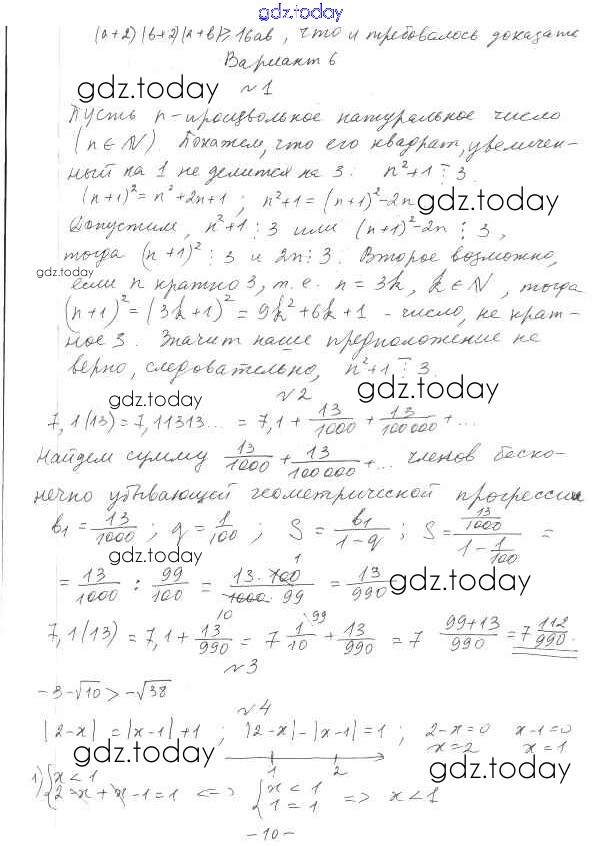 gdz.today
(a+2)(b+2)(a+b)≥16ab, что и требовалось доказать
Вариант 6
gdz.today
№1
Пусть n-произвольное натуральное число
(n∈N). Покажем, что его квадрат, увеличен-
ный на 1 не делится на 3. n²+1 ⋮̅ 3.
(n+1)² = n²+2n+1; n²+1 = (n+1)²-2n
gdz.today
Допустим, n²+1 ⋮ 3 или (n+1)²-2n ⋮ 3,
тогда (n+1)² ⋮ 3 и 2n ⋮ 3. Второе возможно,
gdz.today
если n кратно 3, т.е. n = 3k, k∈N, тогда
(n+1)² = (3k+1)² = 9k²+6k+1 - число, не крат-
ное 3. Значит наше предположение не
верно, следовательно, n²+1 ⋮̅ 3.
№2
gdz.today
gdz.today
7,1(13) = 7,11313... = 7,1 + 13/1000 + 13/100000 + ...
Найдем сумму 13/1000 + 13/100000 + ... членов беско-
нечно убывающей геометрической прогрессии
b₁ = 13/1000; q = 1/100; S = b₁/(1-q); S = (13/1000)/(1-1/100) =
gdz.today
= 13/1000 : 99/100 = 13·100/1000·99 = 13/990
1
10
gdz.today
7,1(13) = 7,1 + 13/990 = 7 1/10 \99 + 13/990 = 7 (99+13)/990 = 7 112/990.
№3
-3-√10 > -√38
№4
|2-x| = |x-1|+1; |2-x|-|x-1|=1; 2-x=0 x-1=0
x=2 x=1
gdz.today
gdz.today
1 2
1) {x<1
2-x+x-1=1 <=> {x<1
1=1 => x<1
-10-